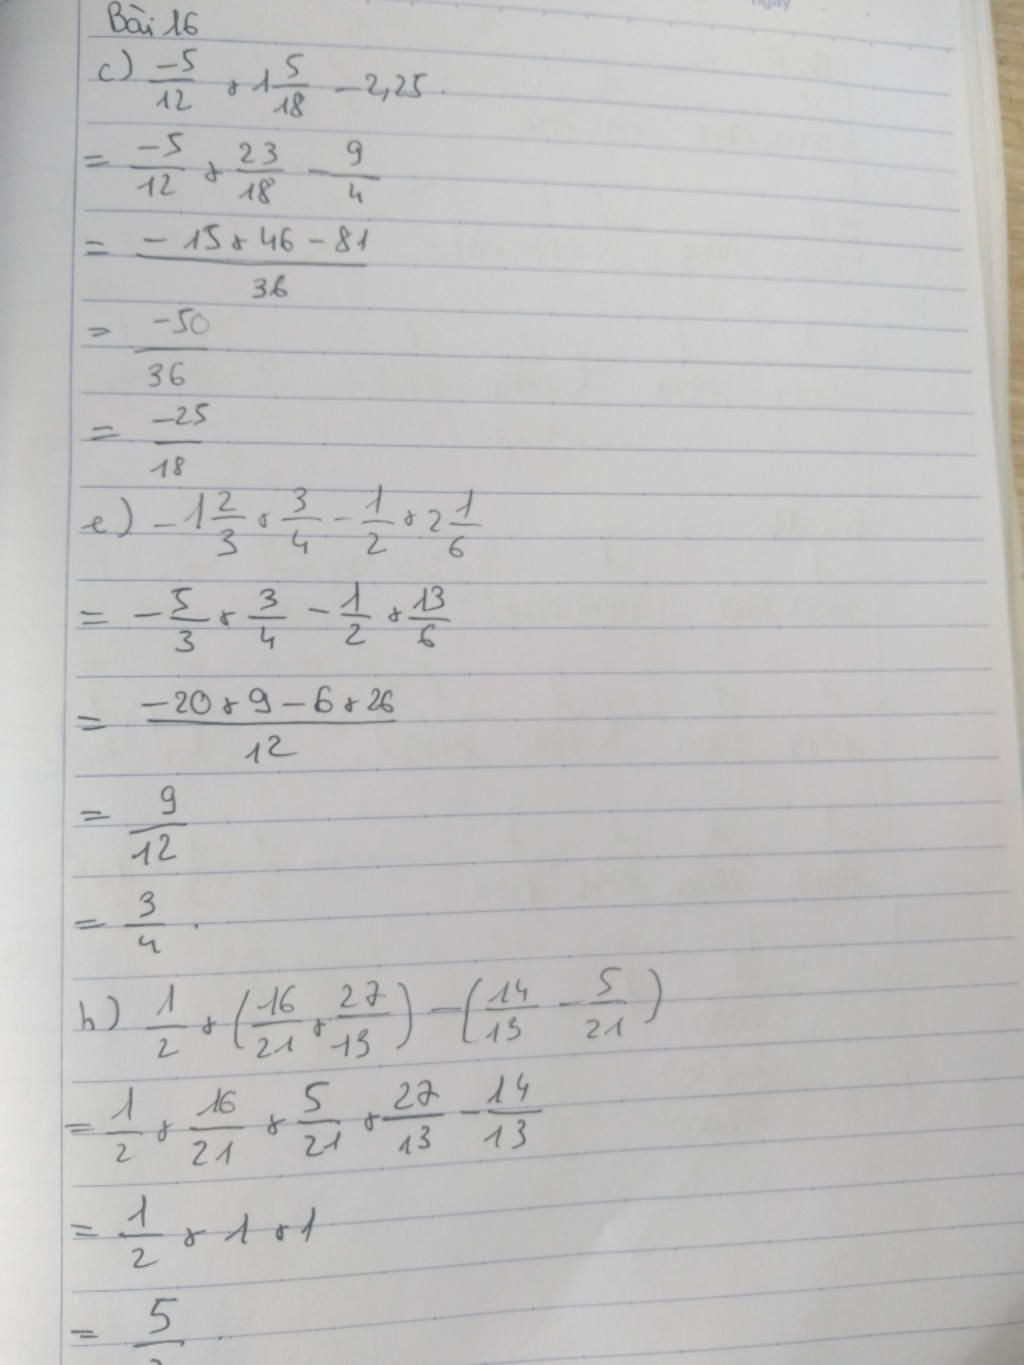 Bài 16
c) -5/12 + 1 5/18 - 2,25.
= -5/12 + 23/18 - 9/4
= (-15 + 46 - 81)/36
= -50/36
= -25/18
e) -1 2/3 + 3/4 - 1/2 + 2 1/6
= -5/3 + 3/4 - 1/2 + 13/6
= (-20 + 9 - 6 + 26)/12
= 9/12
= 3/4.
h) 1/2 + (16/21 + 27/13) - (14/13 - 5/21)
= 1/2 + 16/21 + 5/21 + 27/13 - 14/13
= 1/2 + 1 + 1
= 5/